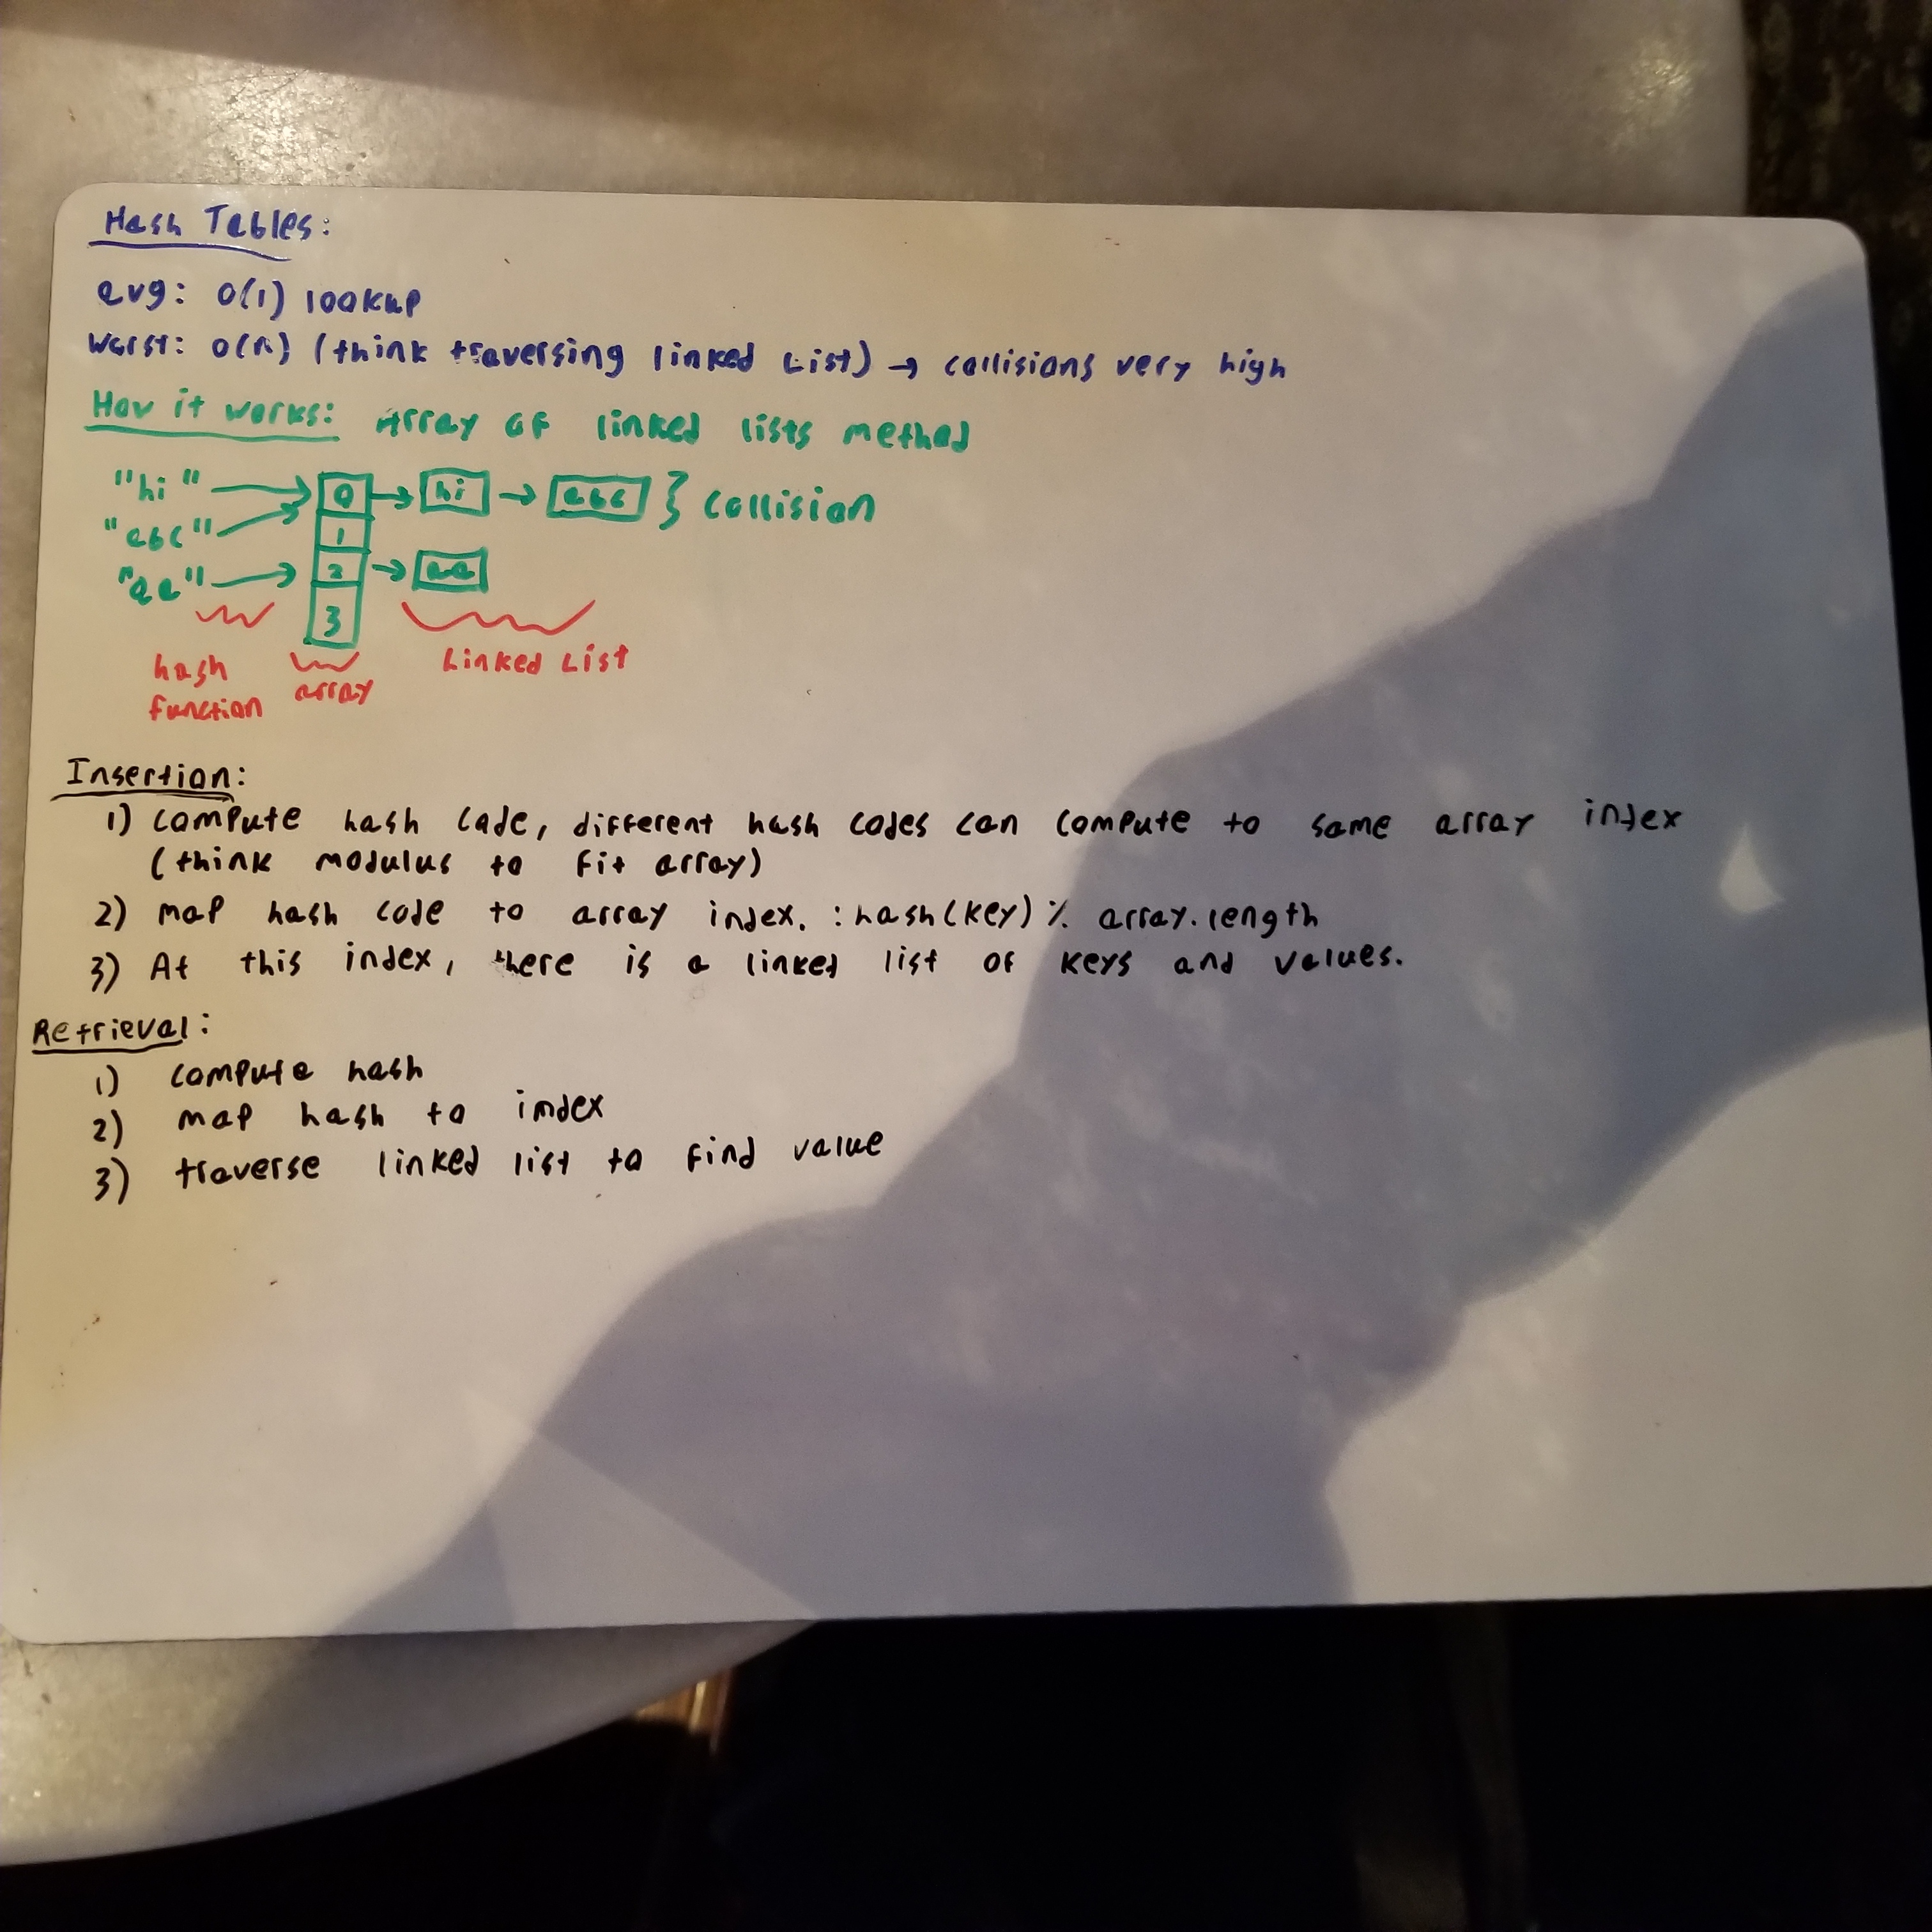 Hash Tables:
avg: O(1) lookup
Worst: O(n) (think traversing linked List) → collisions very high
How it works: Array of linked lists method
"hi" → 0 → hi → abc } Collision
"abc" → 1
"aa" → 2 → aa
3
hash function
array
Linked List
Insertion:
1) compute hash code, different hash codes can compute to same array index
(think modulus to fit array)
2) map hash code to array index. : hash(key) % array.length
3) At this index, there is a linked list of keys and values.
Retrieval:
1) compute hash
2) map hash to index
3) traverse linked list to find value